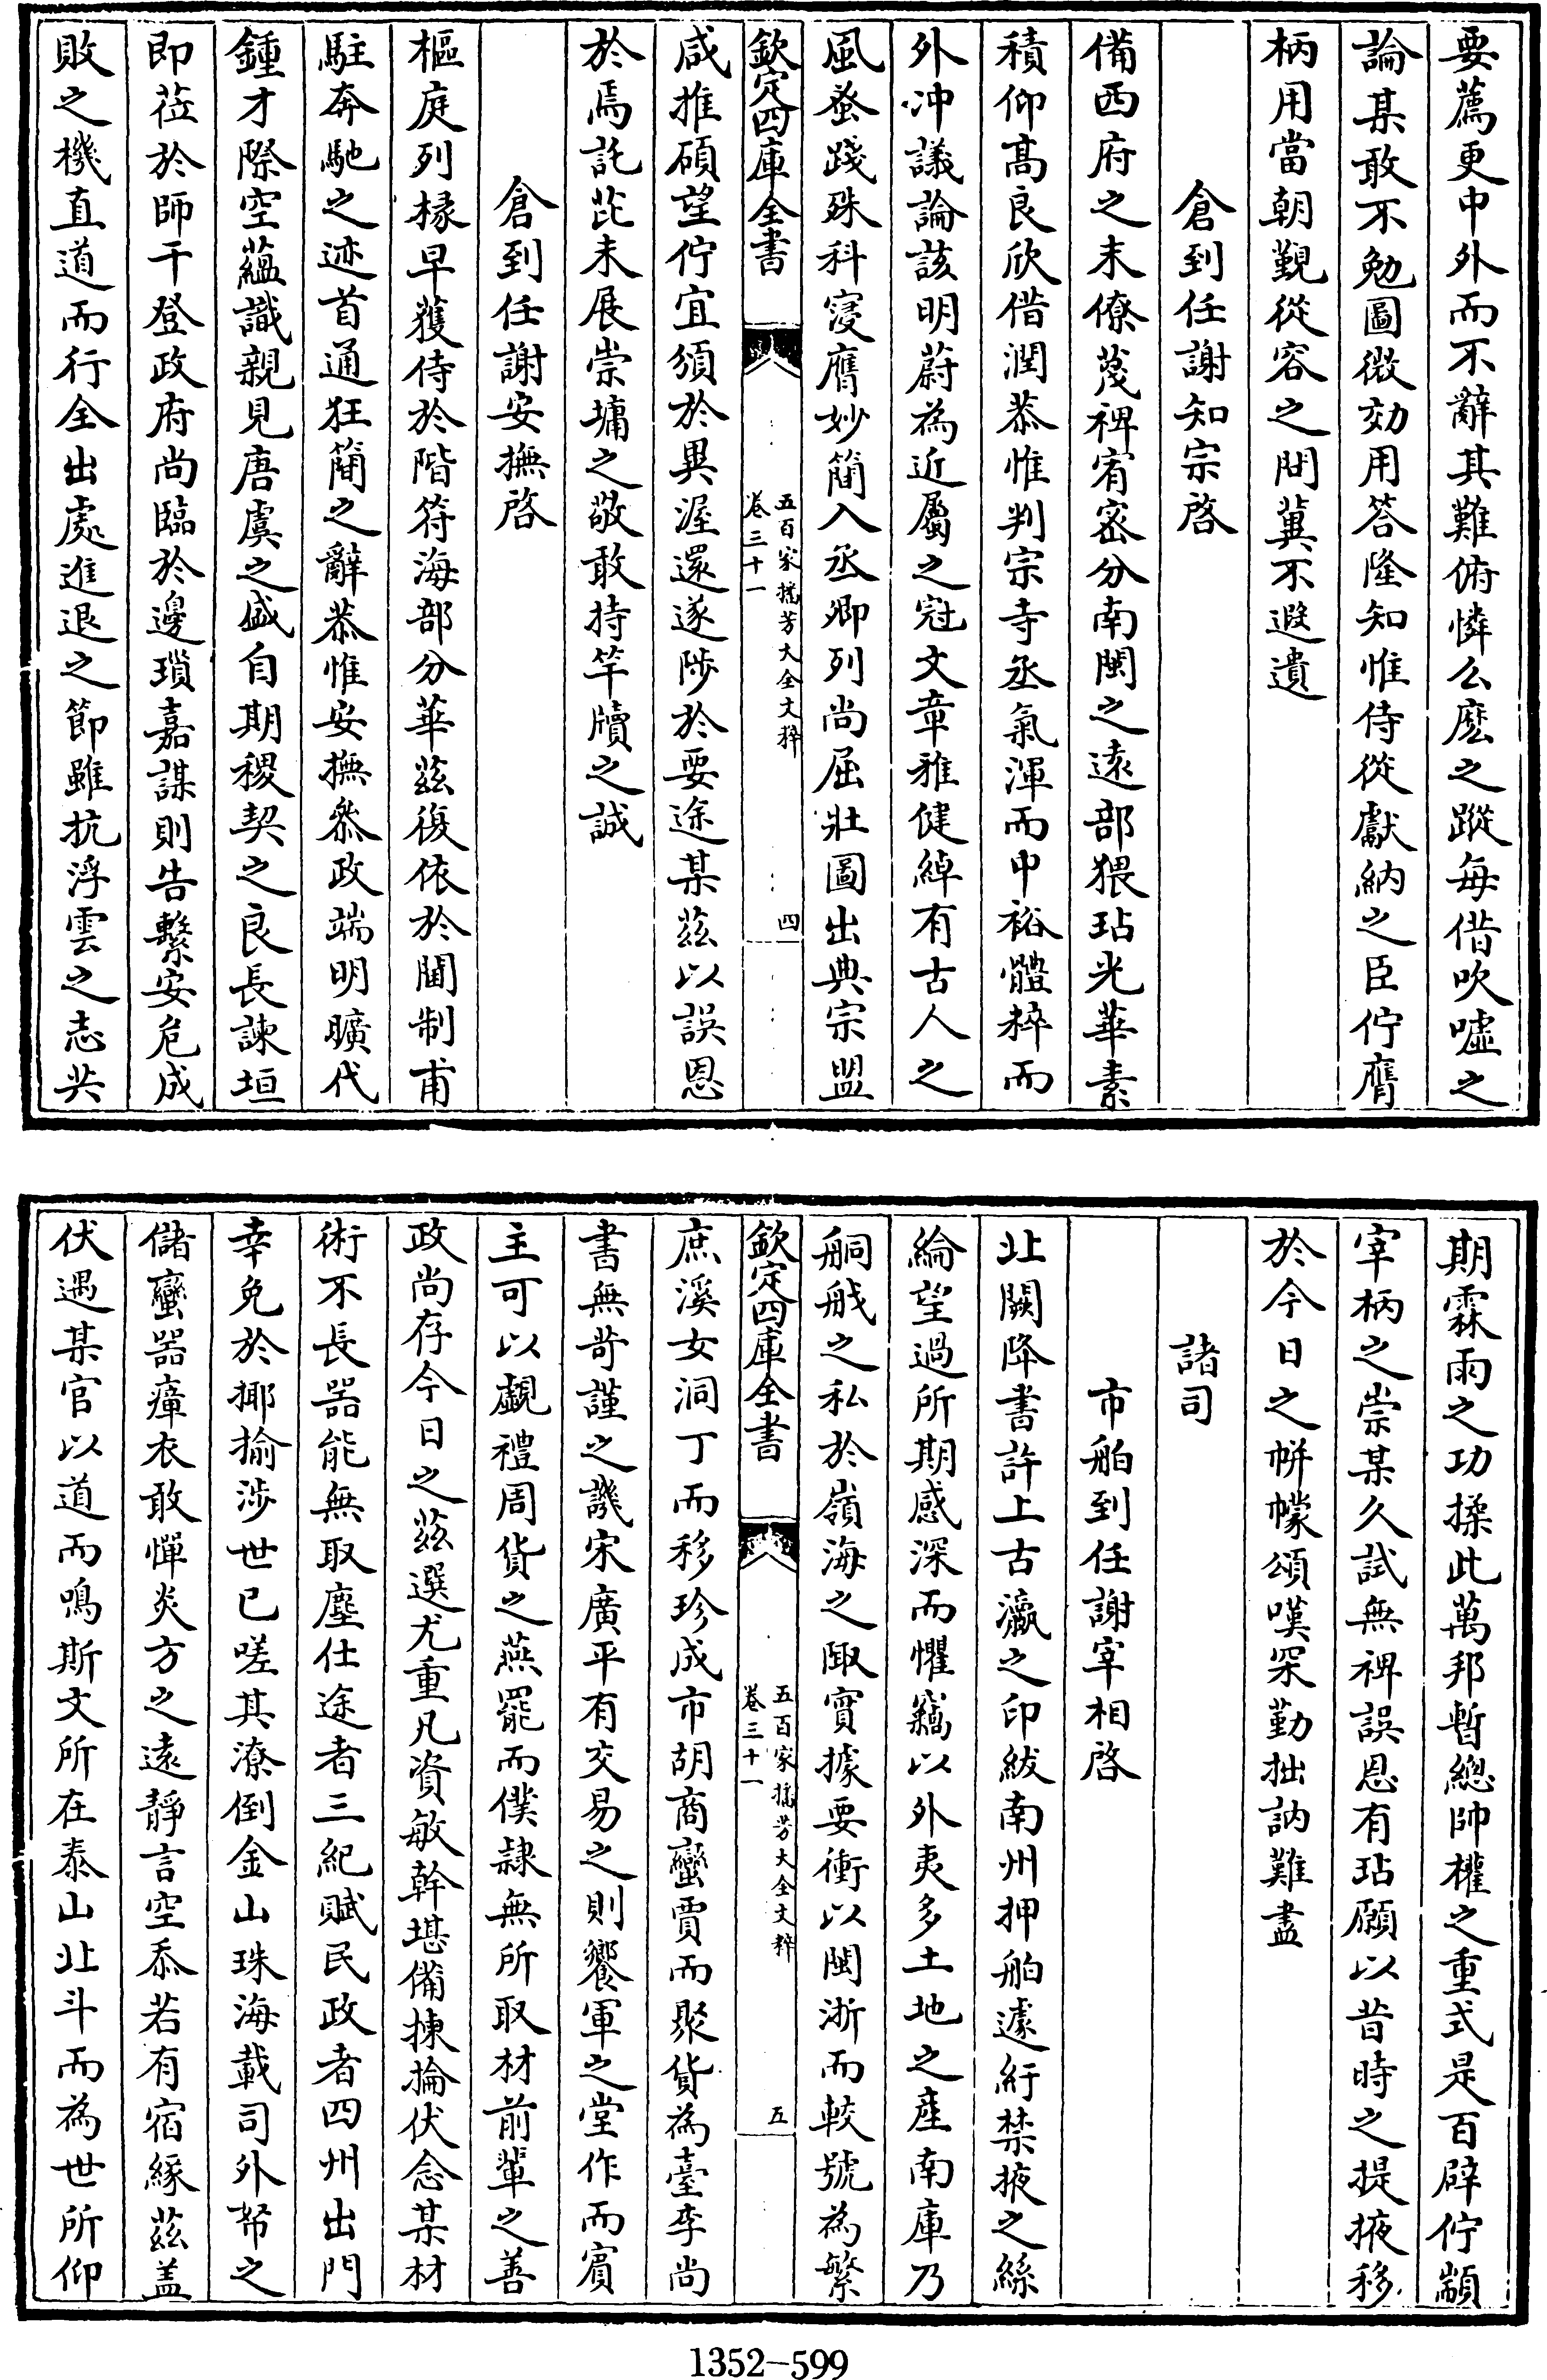 要薦更中外而不辭其難俯憐么麽之蹤每借吹噓之
論某敢不勉圖微効用答隆知惟侍從獻納之臣佇膺
柄用當朝覲從容之間冀不遐遺
倉到任謝知宗啓
備西府之末僚蔑裨宥密分南閩之遠部猥玷光華素
積仰高良欣借潤恭惟判宗寺丞氣渾而中裕體粹而
外冲議論該明蔚為近屬之冠文章雅健綽有古人之
風爰踐殊科寖膺妙簡入丞卿列尚屈壯圖出典宗盟
欽定四庫全書
五百家播芳大全文粹
卷三十一
四
咸推碩望佇宜頒於異渥還遂陟於要途某茲以誤恩
於焉託芘未展崇墉之敬敢持竿牘之誠
倉到任謝安撫啓
樞庭列椽早獲侍於階符海部分華茲復依於閫制甫
駐奔馳之迹首通狂簡之辭恭惟安撫叅政端明曠代
鍾才際空藴識親見唐虞之盛自期稷契之良長諫垣
即莅於師干登政府尚臨於邊瑣嘉謀則告繫安危成
敗之機直道而行全出處進退之節雖抗浮雲之志共
期霖雨之功揉此萬邦暫總帥權之重式是百辟佇顓
宰柄之崇某久試無裨誤恩有玷願以昔時之提掖移
於今日之帡幪頌嘆罙勤拙訥難盡
諸司
市舶到任謝宰相啓
北闕降書許上古瀛之印紱南州押舶遽紆禁掖之絲
綸望過所期感深而懼竊以外夷多土地之産南庫乃
舸舡之私於嶺海之陬實據要衝以閩浙而較號為繁
欽定四庫全書
五百家播芳大全文粹
卷三十一
五
庶溪女洞丁而移珍成市胡商蠻賈而聚貨為臺李尚
書無苛謹之譏宋廣平有交易之則饗軍之堂作而賓
主可以覷禮周貨之燕罷而僕隷無所取材前輩之善
政尚存今日之茲選尤重凡資敏幹堪備揀掄伏念某材
術不長器能無取塵仕途者三紀賦民政者四州出門
幸免於揶揄涉世已嗟其潦倒金山珠海載司外帑之
儲蠻器瘴衣敢憚炎方之遠靜言空忝若有宿緣茲盖
伏遇某官以道而鳴斯文所在泰山北斗而為世所仰
1352-599